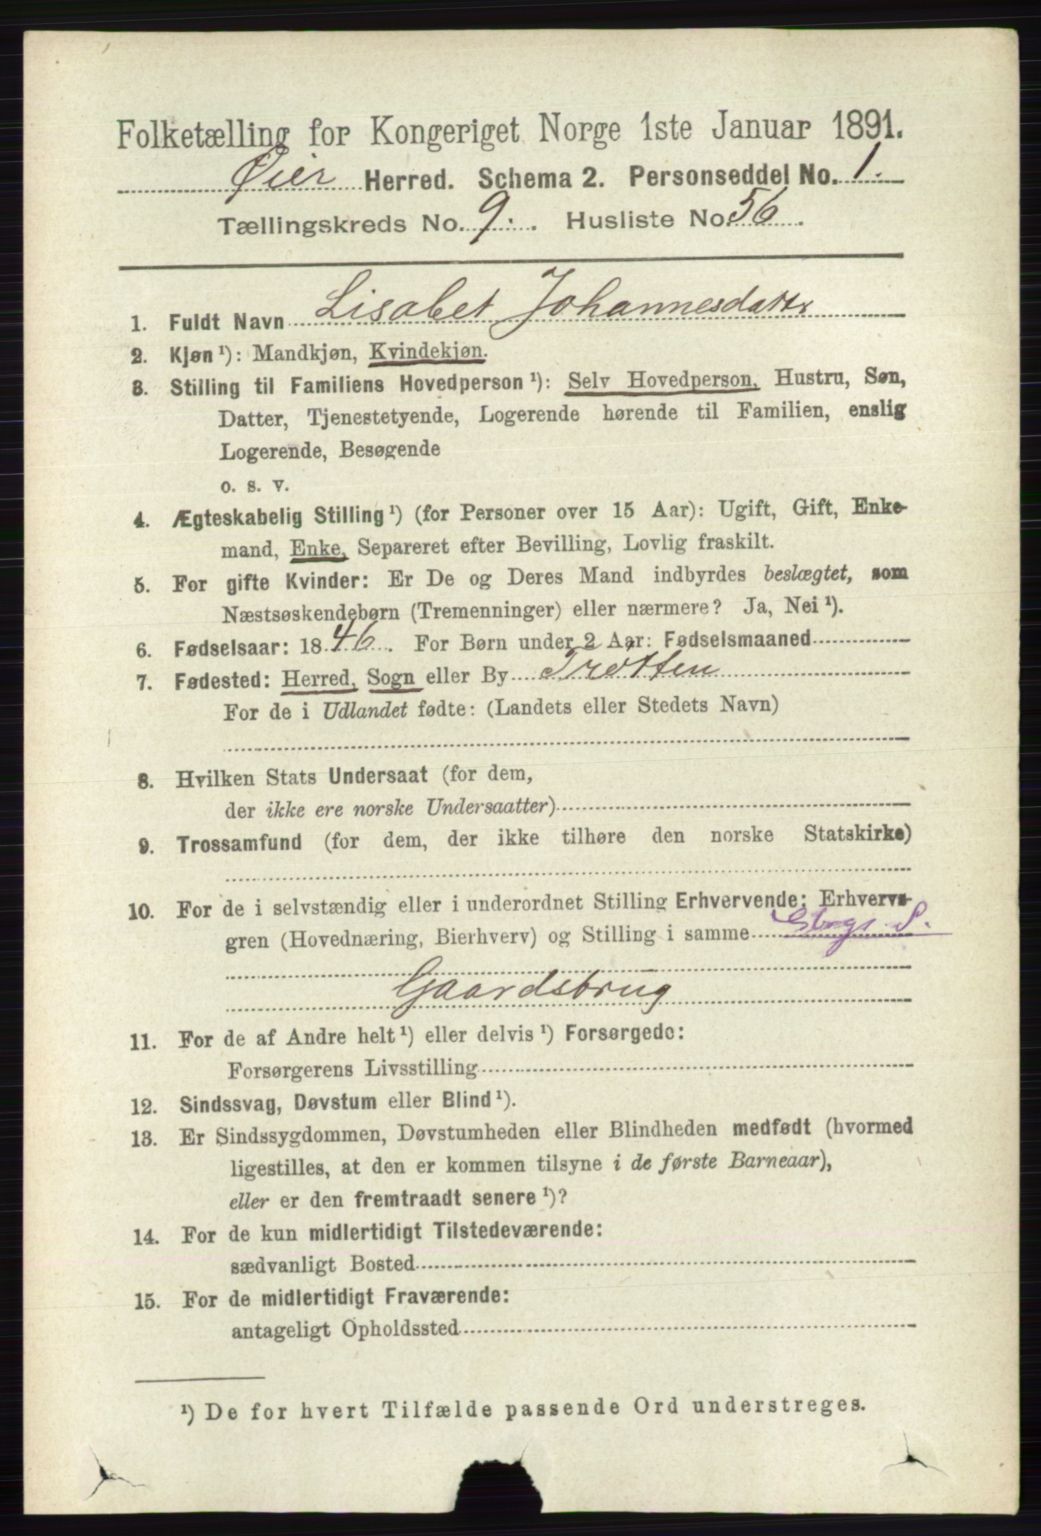 Folketælling for Kongeriget Norge 1ste Januar 1891.
Øier Herred. Schema 2. Personseddel No. 1.
Tællingskreds No. 9. Husliste No. 56.
1. Fuldt Navn Lisabet Johannesdatter
2. Kjøn ¹): Mandkjøn, Kvindekjøn.
3. Stilling til Familiens Hovedperson ¹): Selv Hovedperson, Hustru, Søn,
Datter, Tjenestetyende, Logerende hørende til Familien, enslig
Logerende, Besøgende
o. s. v.
4. Ægteskabelig Stilling ¹) (for Personer over 15 Aar): Ugift, Gift, Enke-
mand, Enke, Separeret efter Bevilling, Lovlig fraskilt.
5. For gifte Kvinder: Er De og Deres Mand indbyrdes beslægtet, som
Næstsøskendebørn (Tremenninger) eller nærmere? Ja, Nei ¹).
6. Fødselsaar: 1846. For Børn under 2 Aar: Fødselsmaaned
7. Fødested: Herred, Sogn eller By Trotten
For de i Udlandet fødte: (Landets eller Stedets Navn)
8. Hvilken Stats Undersaat (for dem,
der ikke ere norske Undersaatter)
9. Trossamfund (for dem, der ikke tilhøre den norske Statskirke)
10. For de i selvstændig eller i underordnet Stilling Erhvervende: Erhvervs-
gren (Hovednæring, Bierhverv) og Stilling i samme S.
Gaardsbrug
11. For de af Andre helt ¹) eller delvis ¹) Forsørgede:
Forsørgerens Livsstilling
12. Sindssvag, Døvstum eller Blind ¹).
13. Er Sindssygdommen, Døvstumheden eller Blindheden medfødt (hvormed
ligestilles, at den er kommen tilsyne i de første Barneaar),
eller er den fremtraadt senere ¹)?
14. For de kun midlertidigt Tilstedeværende:
sædvanligt Bosted
15. For de midlertidigt Fraværende:
antageligt Opholdssted
¹) De for hvert Tilfælde passende Ord understreges.